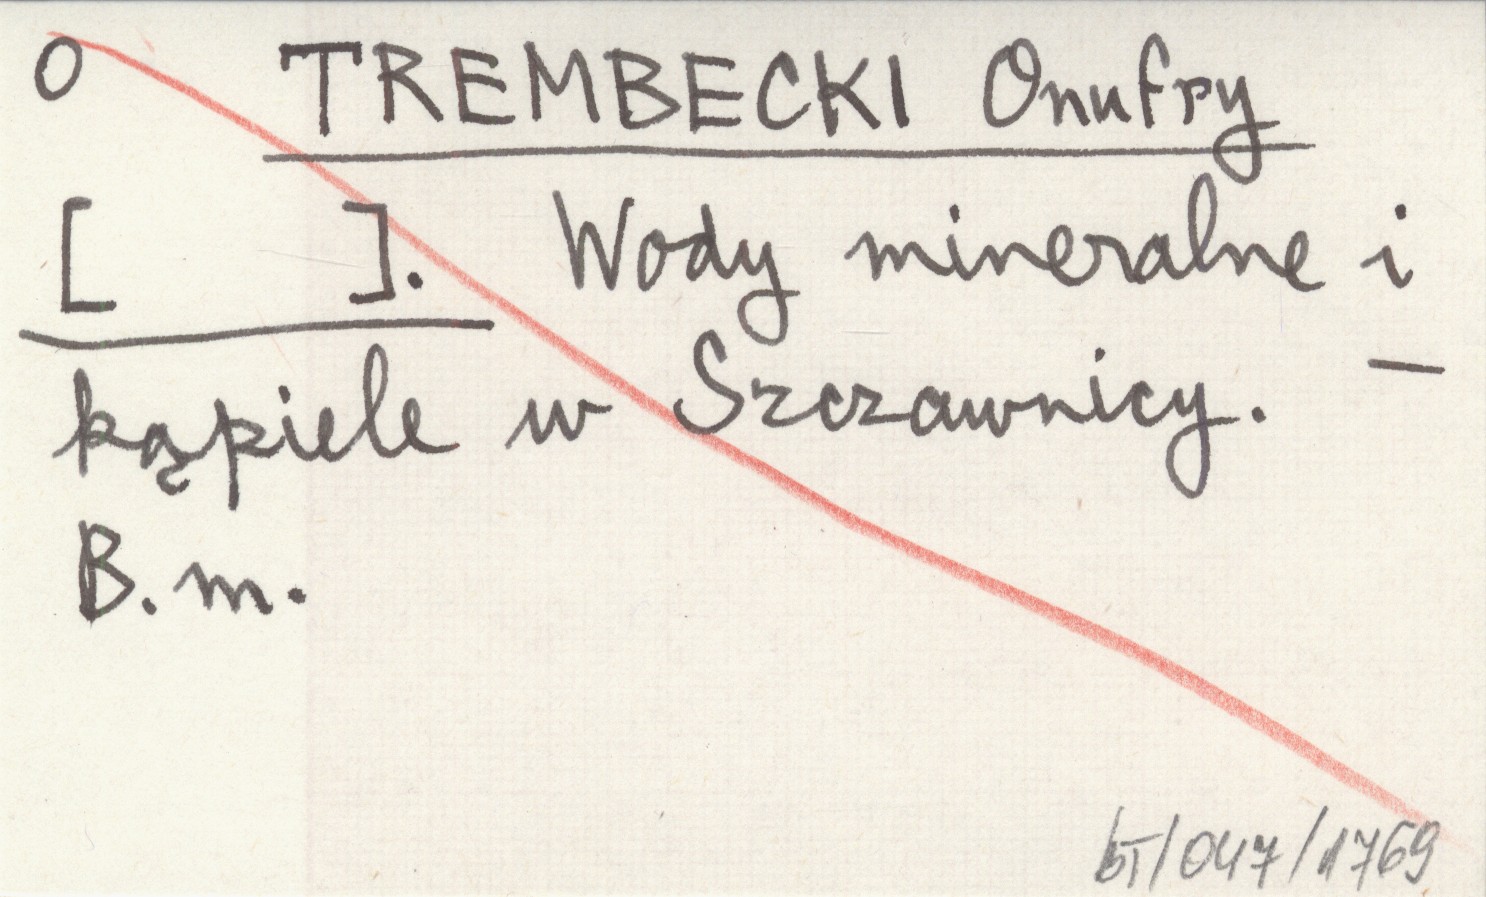 O TREMBECKI Onufry
[ ]. Wody mineralne i
kąpiele w Szczawnicy. —
B. m.
bT/047/1769